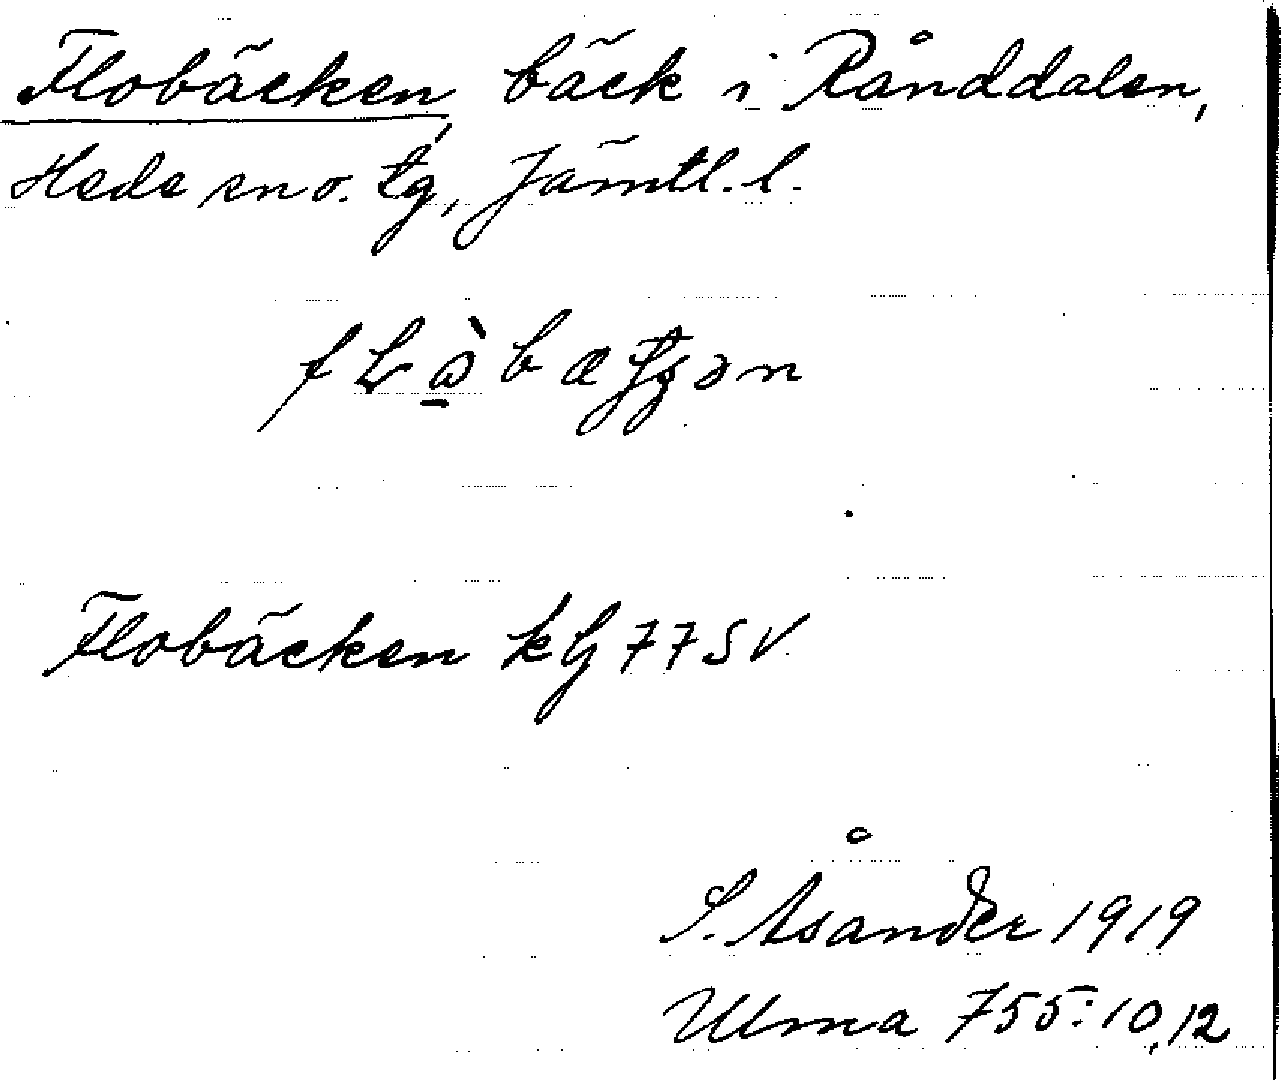 Flobäcken, bäck i Rånddalen,
Hede sn o. tg, Jämtl. l.
Flobäcken kG 77 SV
S. Åsander 1919
Ulma 755:10,12